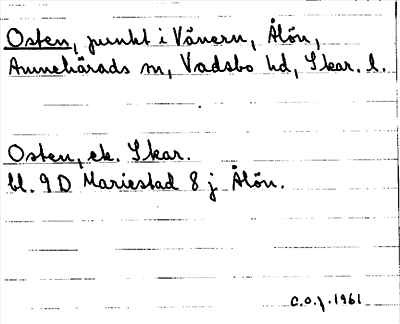 Osten, punkt i Vänern, Ålön,
Amnehärads sn, Vadsbo hd, Skar. l.
Osten, ek. Skar.
bl. 9D Mariestad 8 j Ålön.
C.O.J. 1961